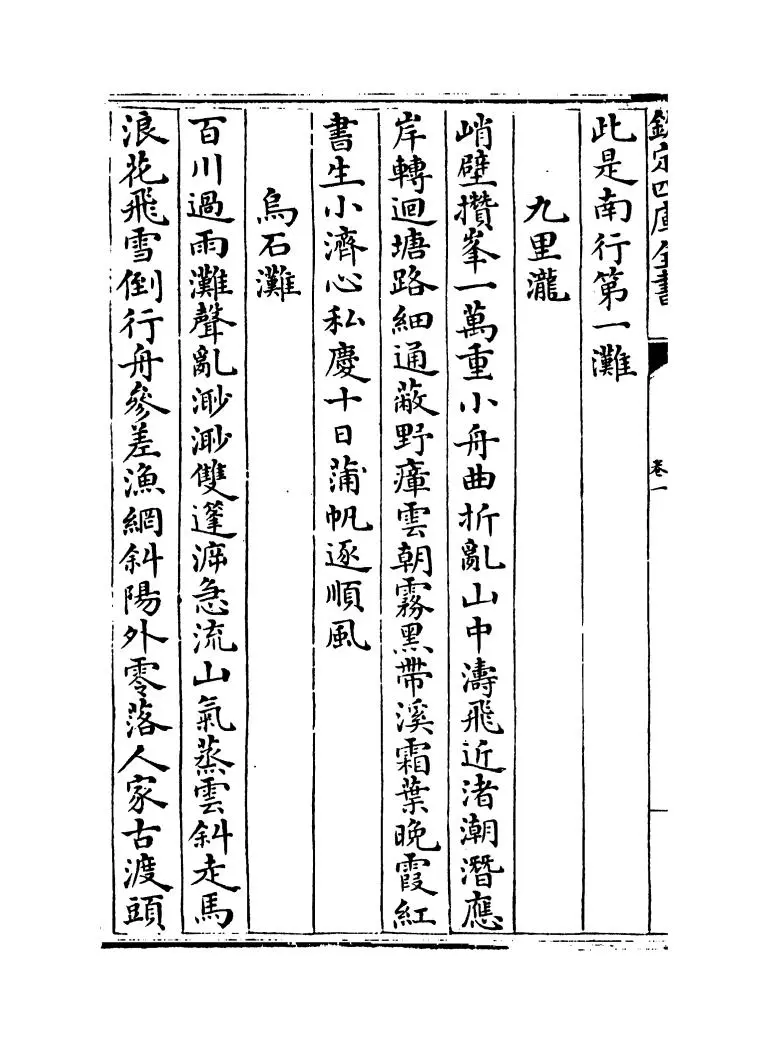 欽定四庫全書
卷一
此是南行第一灘
九里瀧
峭壁攢峯一萬重小舟曲折亂山中濤飛近渚潮潛應
岸轉迴塘路細通蔽野瘴雲朝霧黑帶溪霜葉晚霞紅
書生小濟心私慶十日蒲帆逐順風
烏石灘
百川過雨灘聲亂渺渺雙篷泝急流山氣蒸雲斜走馬
浪花飛雪倒行舟參差漁網斜陽外零落人家古渡頭